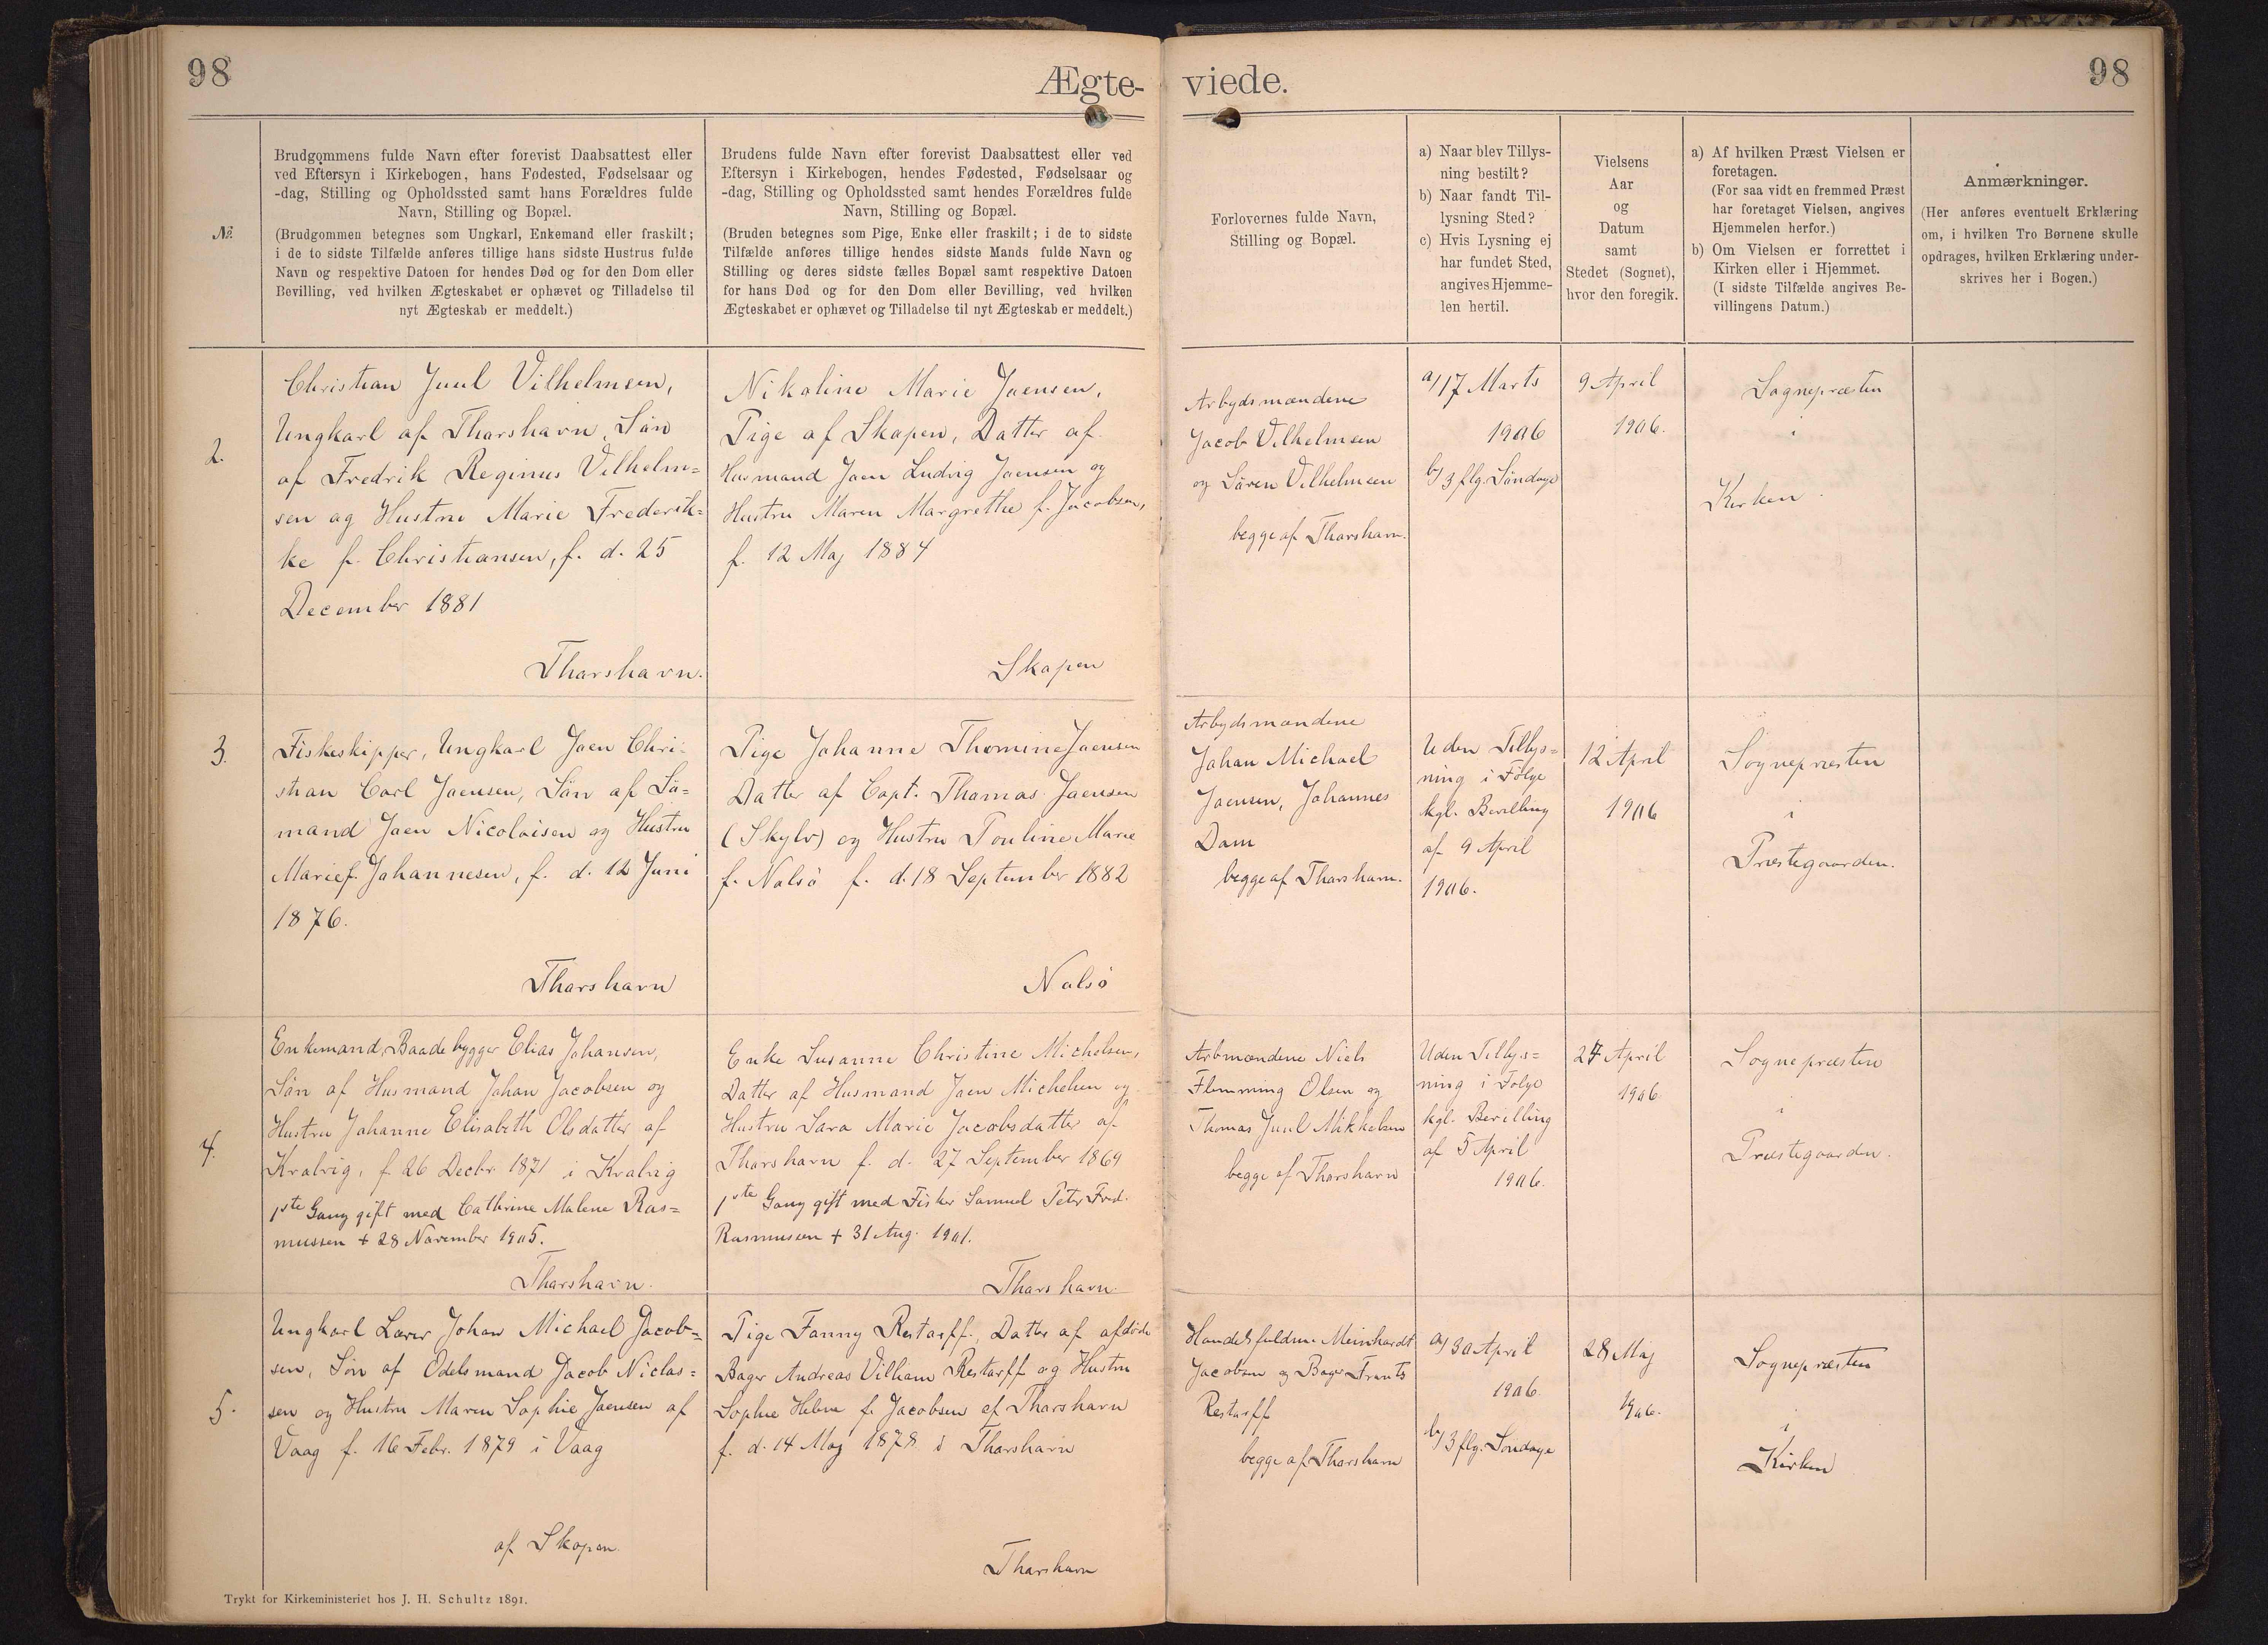 98
Ægte-
viede.
98
№
Brudgommens fulde Navn efter forevist Daabsattest eller
ved Eftersyn i Kirkebogen, hans Fødested, Fødselsaar og
-dag, Stilling og Opholdssted samt hans Forældres fulde
Navn, Stilling og Bopæl.
(Brudgommen betegnes som Ungkarl, Enkemand eller fraskilt;
i de to sidste Tilfælde anføres tillige hans sidste Hustrus fulde
Navn og respektive Datoen for hendes Død og for den Dom eller
Bevilling, ved hvilken Ægteskabet er ophævet og Tilladelse til
nyt Ægteskab er meddelt.)
Brudens fulde Navn efter forevist Daabsattest eller ved
Eftersyn i Kirkebogen, hendes Fødested, Fødselsaar og
-dag, Stilling og Opholdssted samt hendes Forældres fulde
Navn, Stilling og Bopæl.
(Bruden betegnes som Pige, Enke eller fraskilt; i de to sidste
Tilfælde anføres tillige hendes sidste Mands fulde Navn og
Stilling og deres sidste fælles Bopæl samt respektive Datoen
for hans Død og for den Dom eller Bevilling, ved hvilken
Ægteskabet er ophævet og Tilladelse til nyt Ægteskab er meddelt.)
Forlovernes fulde Navn,
Stilling og Bopæl.
a) Naar blev Tillys-
ning bestilt?
b) Naar fandt Til-
lysning Sted?
c) Hvis Lysning ej
har fundet Sted,
angives Hjemme-
len hertil.
Vielsens
Aar
og
Datum
samt
Stedet (Sognet),
hvor den foregik.
a) Af hvilken Præst Vielsen er
foretagen.
(For saa vidt en fremmed Præst
har foretaget Vielsen, angives
Hjemmelen herfor.)
b) Om Vielsen er forrettet i
Kirken eller i Hjemmet.
(I sidste Tilfælde angives Be-
villingens Datum.)
Anmærkninger.
(Her anføres eventuelt Erklæring
om, i hvilken Tro Børnene skulle
opdrages, hvilken Erklæring under-
skrives her i Bogen.)
2.
Christian Juul Vilhelmsen,
Ungkarl af Thorshavn, Søn
af Fredrik Reginus Vilhelm=
sen og Hustru Marie Frederik=
ke f. Christiansen, f. d. 25
December 1881
Thorshavn.
Nikoline Marie Joensen,
Pige af Skopen, Datter af
Husmand Joen Ludvig Joensen og
Hustru Maren Margrethe f. Jacobsen,
f. 12 Maj 1884
Skopen
Arbejdsmændene
Jacob Vilhelmsen
og Sören Vilhelmsen
begge af Thorshavn.
a) 17 Marts
1906
b) 3 flg. Søndage
9 April
1906.
Sognepræsten
i
Kirken
3.
Fiskeskipper, Ungkarl Joen Chri-
stian Carl Joensen, Søn af Sø=
mand Joen Nicolaisen og Hustru
Marie f. Johannesen, f. d. 12 Juni
1876.
Thorshavn
Pige Johanne Thomine Joensen
Datter af Capt. Thomas Joensen
(Skylv) og Hustru Pouline Marie
f. Nolsö f. d. 18 September 1882
Nolsö
Arbejdsmændene
Johan Michael
Joensen, Johannes
Dam
begge af Thorshavn.
Uden Tillys=
ning i Følge
kgl. Bevilling
af 9 April
1906.
12 April
1906
Sognepræsten
i
Præstegaarden.
4.
Enkemand, Baadebygger Elias Johansen,
Søn af Husmand Johan Jacobsen og
Hustru Johanne Elisabeth Olsdatter af
Kvalvig, f. 26 Decbr. 1871 i Kvalvig
1ste Gang gift med Cathrine Malene Ras=
mussen + 28 November 1905.
Thorshavn.
Enke Susanne Christine Michelsen,
Datter af Husmand Joen Michelsen og
Hustru Sara Marie Jacobsdatter af
Thorshavn f. d. 27 September 1869
1ste Gang gift med Fisker Samuel Peter Fred.
Rasmussen + 31 Aug. 1901.
Thorshavn.
Arbmændene Niels
Flemming Olsen og
Thomas Juul Mikkelsen
begge af Thorshavn
Uden Tillys=
ning i Følge
kgl. Bevilling
af 5 April
1906.
27 April
1906
Sognepræsten
i
Præstegaarden.
5.
Ungkarl Lærer Johan Michael Jacob=
sen, Søn af Odelsmand Jacob Niclas=
sen og Hustru Maren Sophie Joensen af
Vaag f. 16 Febr. 1879 i Vaag
af Skopen.
Pige Fanny Restorff, Datter af afdöde
Bager Andreas Vilhelm Restorff og Hustru
Sophie Helene f. Jacobsen af Thorshavn
f. d. 14 Maj 1878 i Thorshavn
Thorshavn
Handelsfuldm. Meinhardt
Jacobsen og Bager Frants
Restorff
begge af Thorshavn
a) 30 April
1906.
b) 3 flg. Søndage
28 Maj
1906.
Sognepræsten
i
Kirken
Trykt for Kirkeministeriet hos J. H. Schultz 1891.